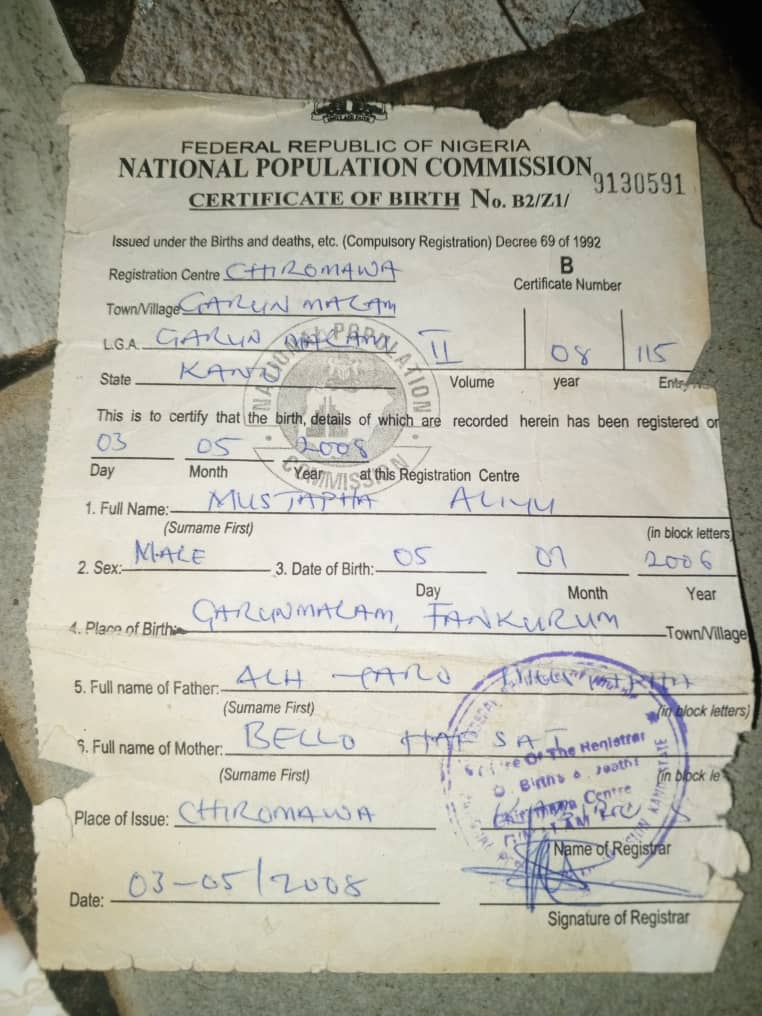 FEDERAL REPUBLIC OF NIGERIA
NATIONAL POPULATION COMMISSION
CERTIFICATE OF BIRTH No. B2/Z1/ 9130591
Issued under the Births and deaths, etc. (Compulsory Registration) Decree 69 of 1992
Registration Centre CHIROMAWA B
Certificate Number
Town/Village GARUN MALAM
L.G.A. GARUN MALAM II 08 115
State KANO Volume year Entry
NATIONAL POPULATION COMMISSION
This is to certify that the birth, details of which are recorded herein has been registered on
03 05 2008
Day Month Year at this Registration Centre
1. Full Name: MUSTAPHA ALIYU
(Surname First) (in block letters)
2. Sex: MALE 3. Date of Birth: 05 07 2006
Day Month Year
4. Place of Birth: GARUNMALAM, FANKURUM Town/Village
5. Full name of Father: ALH YARO
(Surname First) (in block letters)
6. Full name of Mother: BELLO HAFSAT
(Surname First) (in block le
Office Of The Registrar
Births
Centre
KANO STATE
Place of Issue: CHIROMAWA
Name of Registrar
Date: 03-05/2008
Signature of Registrar